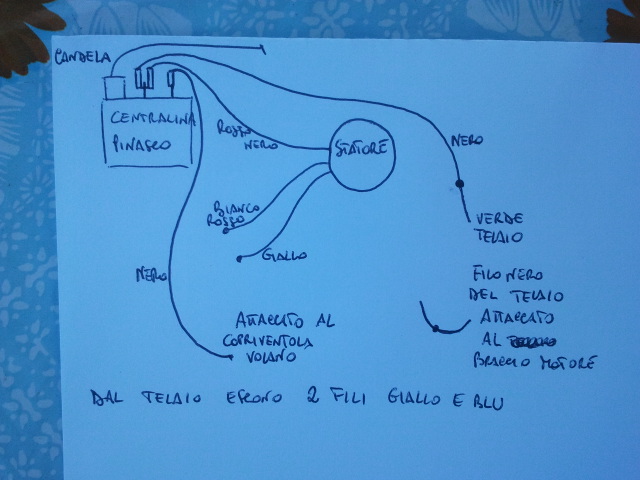 CANDELA
CENTRALINA
PINASCO
ROSSO
NERO
STATORE
NERO
BIANCO
ROSSO
GIALLO
VERDE
TELAIO
NERO
ATTACCATO AL
COPRIVENTOLA
VOLANO
FILO NERO
DEL TELAIO
ATTACCATO
AL
BRACCIO MOTORE
DAL TELAIO ESCONO 2 FILI GIALLO E BLU